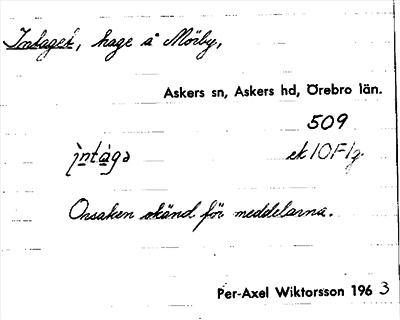 Intaget, hage å Mörby,
Askers sn, Askers hd, Örebro län.
509
i̠ntàgə ek 10F1g
Orsaken okänd för meddelarna.
Per-Axel Wiktorsson 1963